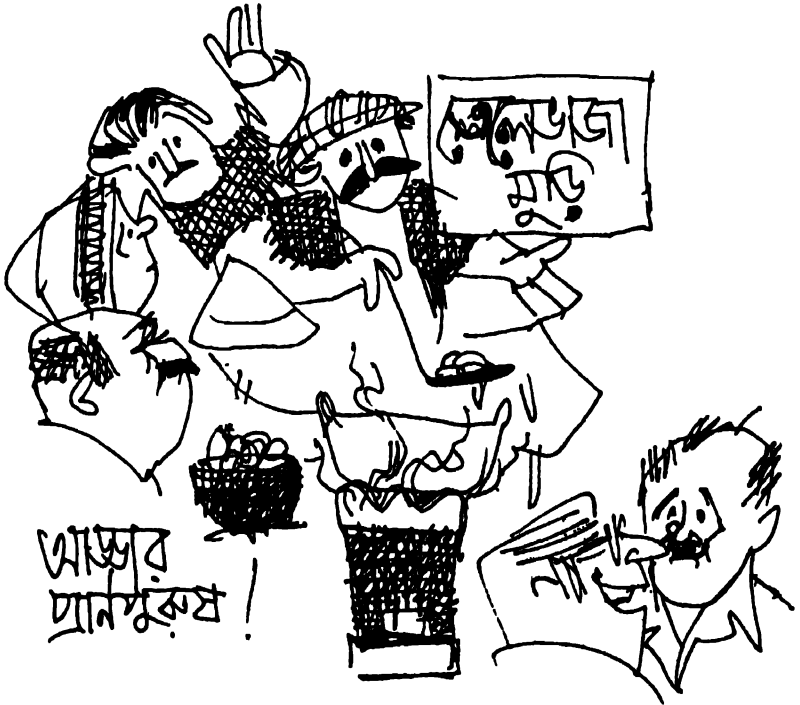 তেলেভাজা
মুড়ি
আড্ডার
প্রানপুরুষ !